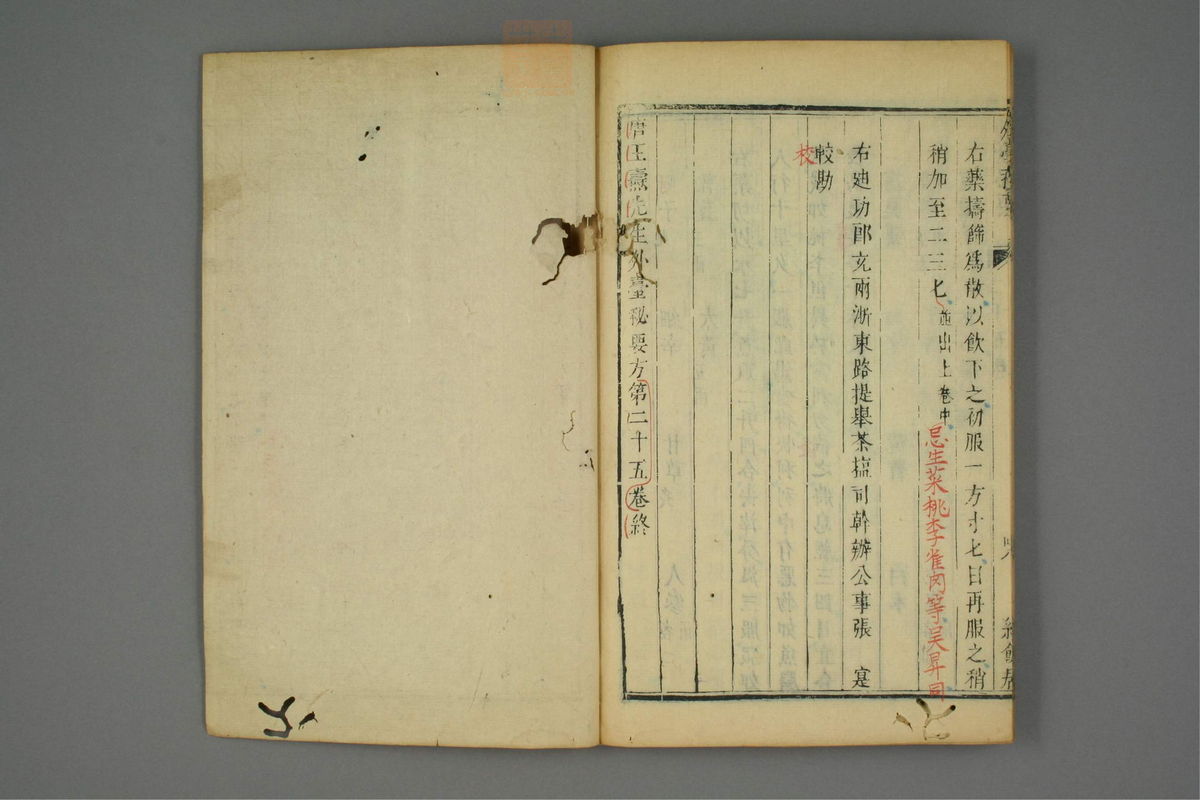 右藥擣篩爲散以飲下之初服一方寸七日再服之稍
稍加至二三七並出上卷中忌生菜桃李雀肉等吴昇同
右廸功郎充兩浙東路提舉茶塩司幹辦公事張 寔
較勘
校
唐王燾先生外臺秘要方第二十五卷終